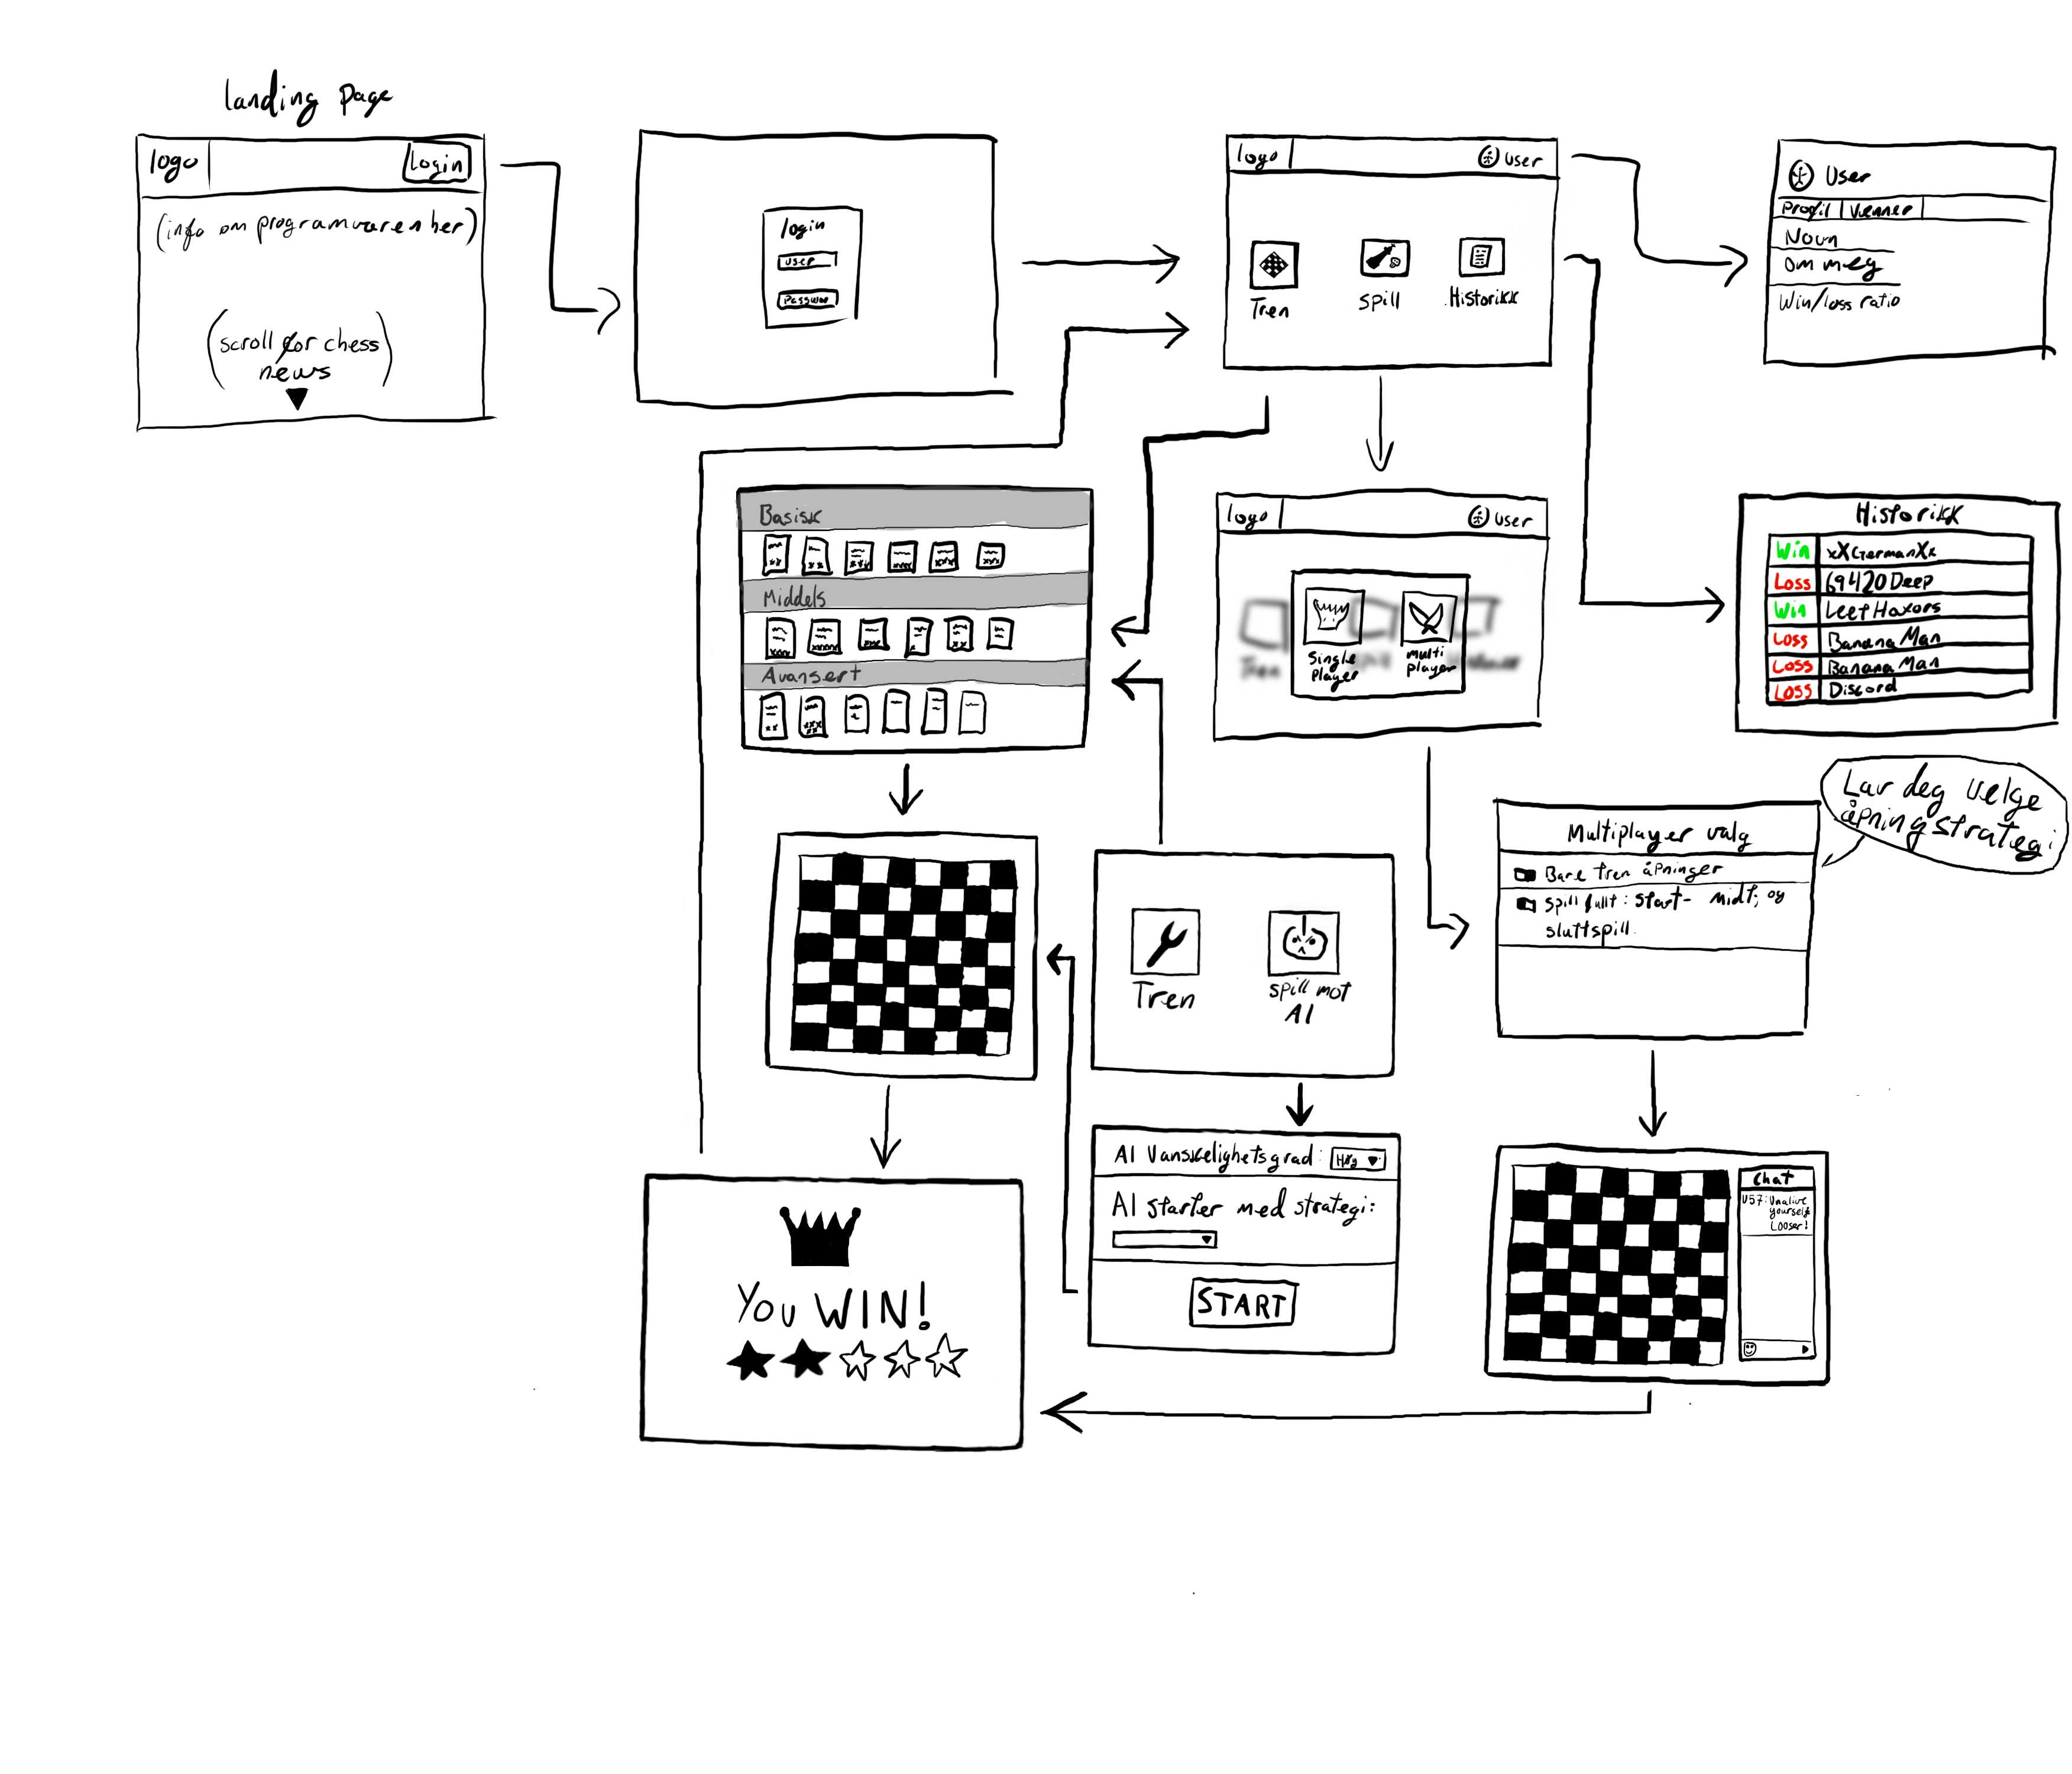 landing page
logo
Login
(info om programvaren her)
(scroll for chess
news)
login
user
logo
User
Tren
Spill
Historikk
User
Profil
Venner
Navn
Om meg
Win/loss ratio
Basisk
Middels
Avansert
logo
User
Tren
Single
player
multi
player
Historikk
Win
xXGermanXx
Loss
69420Deep
Win
LeetHaxors
Loss
BananaMan
Loss
BananaMan
Loss
Discord
Lar deg velge
åpningstrategi
Multiplayer valg
Bare tren åpninger
Spill fullt: Start- midt, og
sluttspill.
Tren
Spill mot
AI
AI Vanskelighetsgrad:
Høy
AI starter med strategi:
START
Chat
U57: Unalive
yourself
Looser!
You WIN!